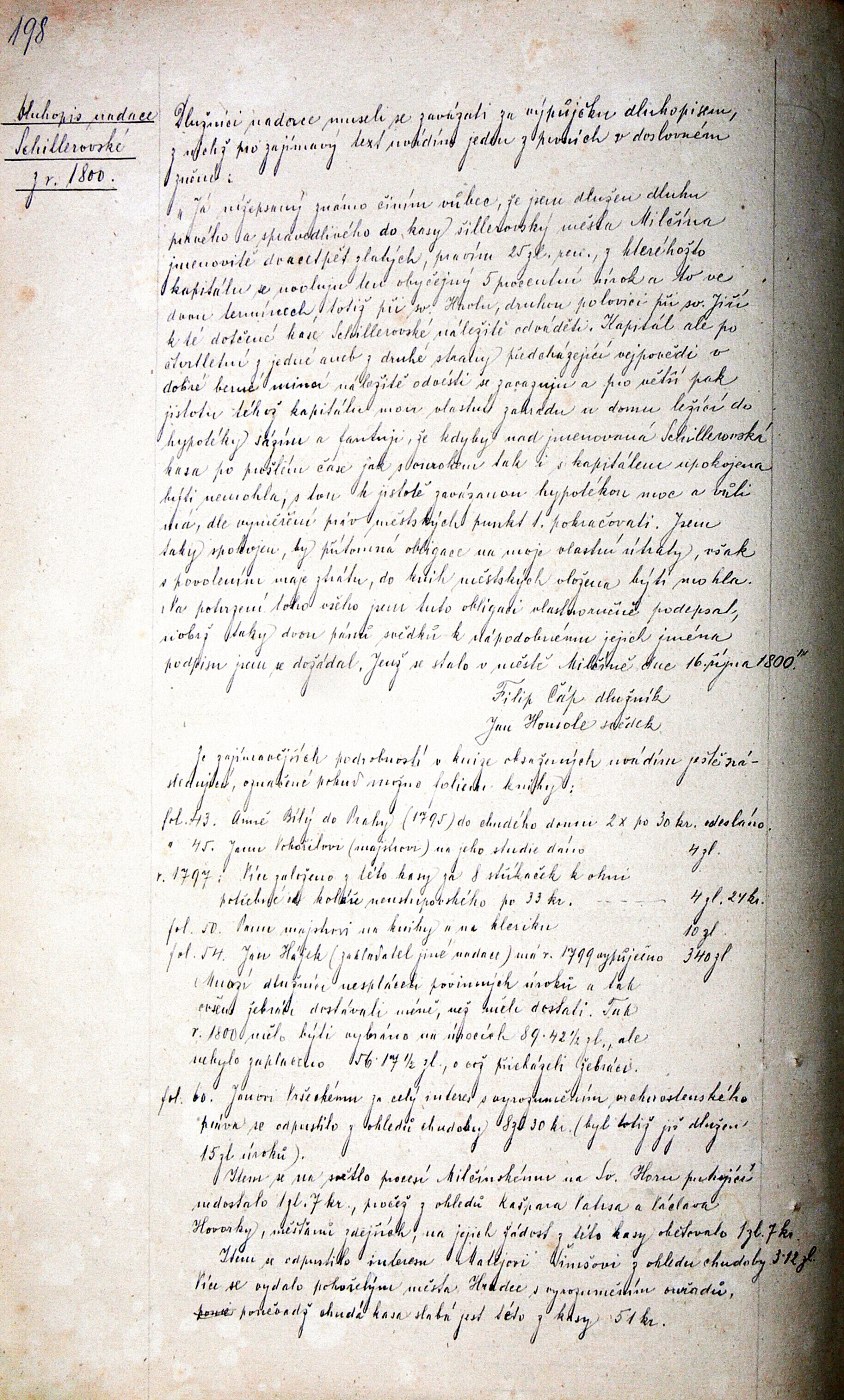 198
Dluhopis nadace
Schillerovské
z r. 1800.
Dlužníci nadace museli se zavázati za výpůjčku dluhopisem,
z nichž pro zajímavý text uvádím jeden z prvních v doslovném
znění:
"Já nížepsaný známo činím vůbec, že jsem dlužen dluhu
pravého a spravedlivého do kasy šillerovský města Milčína
jmenovitě dvacetpět zlatých, pravím 25 zl. , z kteréhožto
kapitálu se uvoluju ten obyčejný 5 procentní ourok a to ve
dvou termínech, totiž při sv. Havlu, druhou polovici při sv. Jiří
k té dotčené kase Schillerovské náležitě odváděti. Kapitál ale po
čtvrtletní z jedné aneb z druhé strany předcházející vejpovědi v
dobré berné minci náležitě odvésti se zavazuju a pro větší pak
jistotu téhož kapitálu mou vlastní zahradu u domu ležící do
hypotéky sázím a fantuji, že kdyby nad jmenovaná Schillerovská
kasa po prošlém čase jak s ourokem tak i s kapitálem upokojena
býti nemohla, s tou k jistotě zavázanou hypotékou moc a vůli
má, dle vyměření práv městských punkt 1. pokračovati. Jsem
taky spokojen, by přítomná obligace na moje vlastní útraty, však
s povolením mage ztrátu, do knih městských vložena býti mohla.
Na potvrzení toho všeho jsem tuto obligaci vlastnoručně podepsal,
nobrž taky dvou pánů svědků k nápodobnému jejich jména
podpisu jsem se dožádal. Jenž se stalo v městě Milčíně dne 16. října 1800."
Filip Čáp dlužník
Jan Housole svědek
Ze zajímavějších podrobností v knize obsažených uvádím ještě ná-
sledující, označené pokud možno foliem knihy:
fol. 43. Anně Bílý do Prahy (1795) do chudého domu 2x po 30 kr. odesláno.
" 45. Janu Pohořilovi (majstrovi) na jeho studie dáno 4 zl.
r. 1797: Více založeno z této kasy za 8 stříkaček k ohni
potřebné od koláře neustupovského po 33 kr. - - - - - 4 zl. 24 kr.
fol. 50. Panu majstrovi na knihy a na kleriku 10 zl.
fol. 54. Jan Hájek (zakladatel jiné nadace) má r. 1799 vypůjčeno 340 zl
Mnozí dlužníci nespláceli povinných úroků a tak
ovšem žebráci dostávali méně, než měli dostati. Tak
r. 1800 mělo býti vybráno na úrocích 89·42½ zl., ale
nebylo zaplaceno 56·17½ zl., o což přicházeli žebráci.
fol. 60. Janovi Vršeckému za celý interes s vyrozuměním vrchnostenského
práva se odpustilo z ohledů chudoby 8 zl 30 kr. (byl totiž již dlužen
15 zl úroků).
Item se na světlo procesí Milčinskému na Sv. Horu putující
nedostalo 1 zl. 7 kr., pročež z ohledů Kašpara a Václava
Hovorky, měšťanů zdejších, na jejich žádost z této kasy obětovalo 1 zl. 7 kr.
Item se odpustilo interesu Matějovi Šimšovi z ohledu chudoby 3·12 zl.
Více se vydalo pohořelým města Hradce s vyrozuměním ouřadů,
poněvadž chudá kasa slabá jest této z kasy 51 kr.